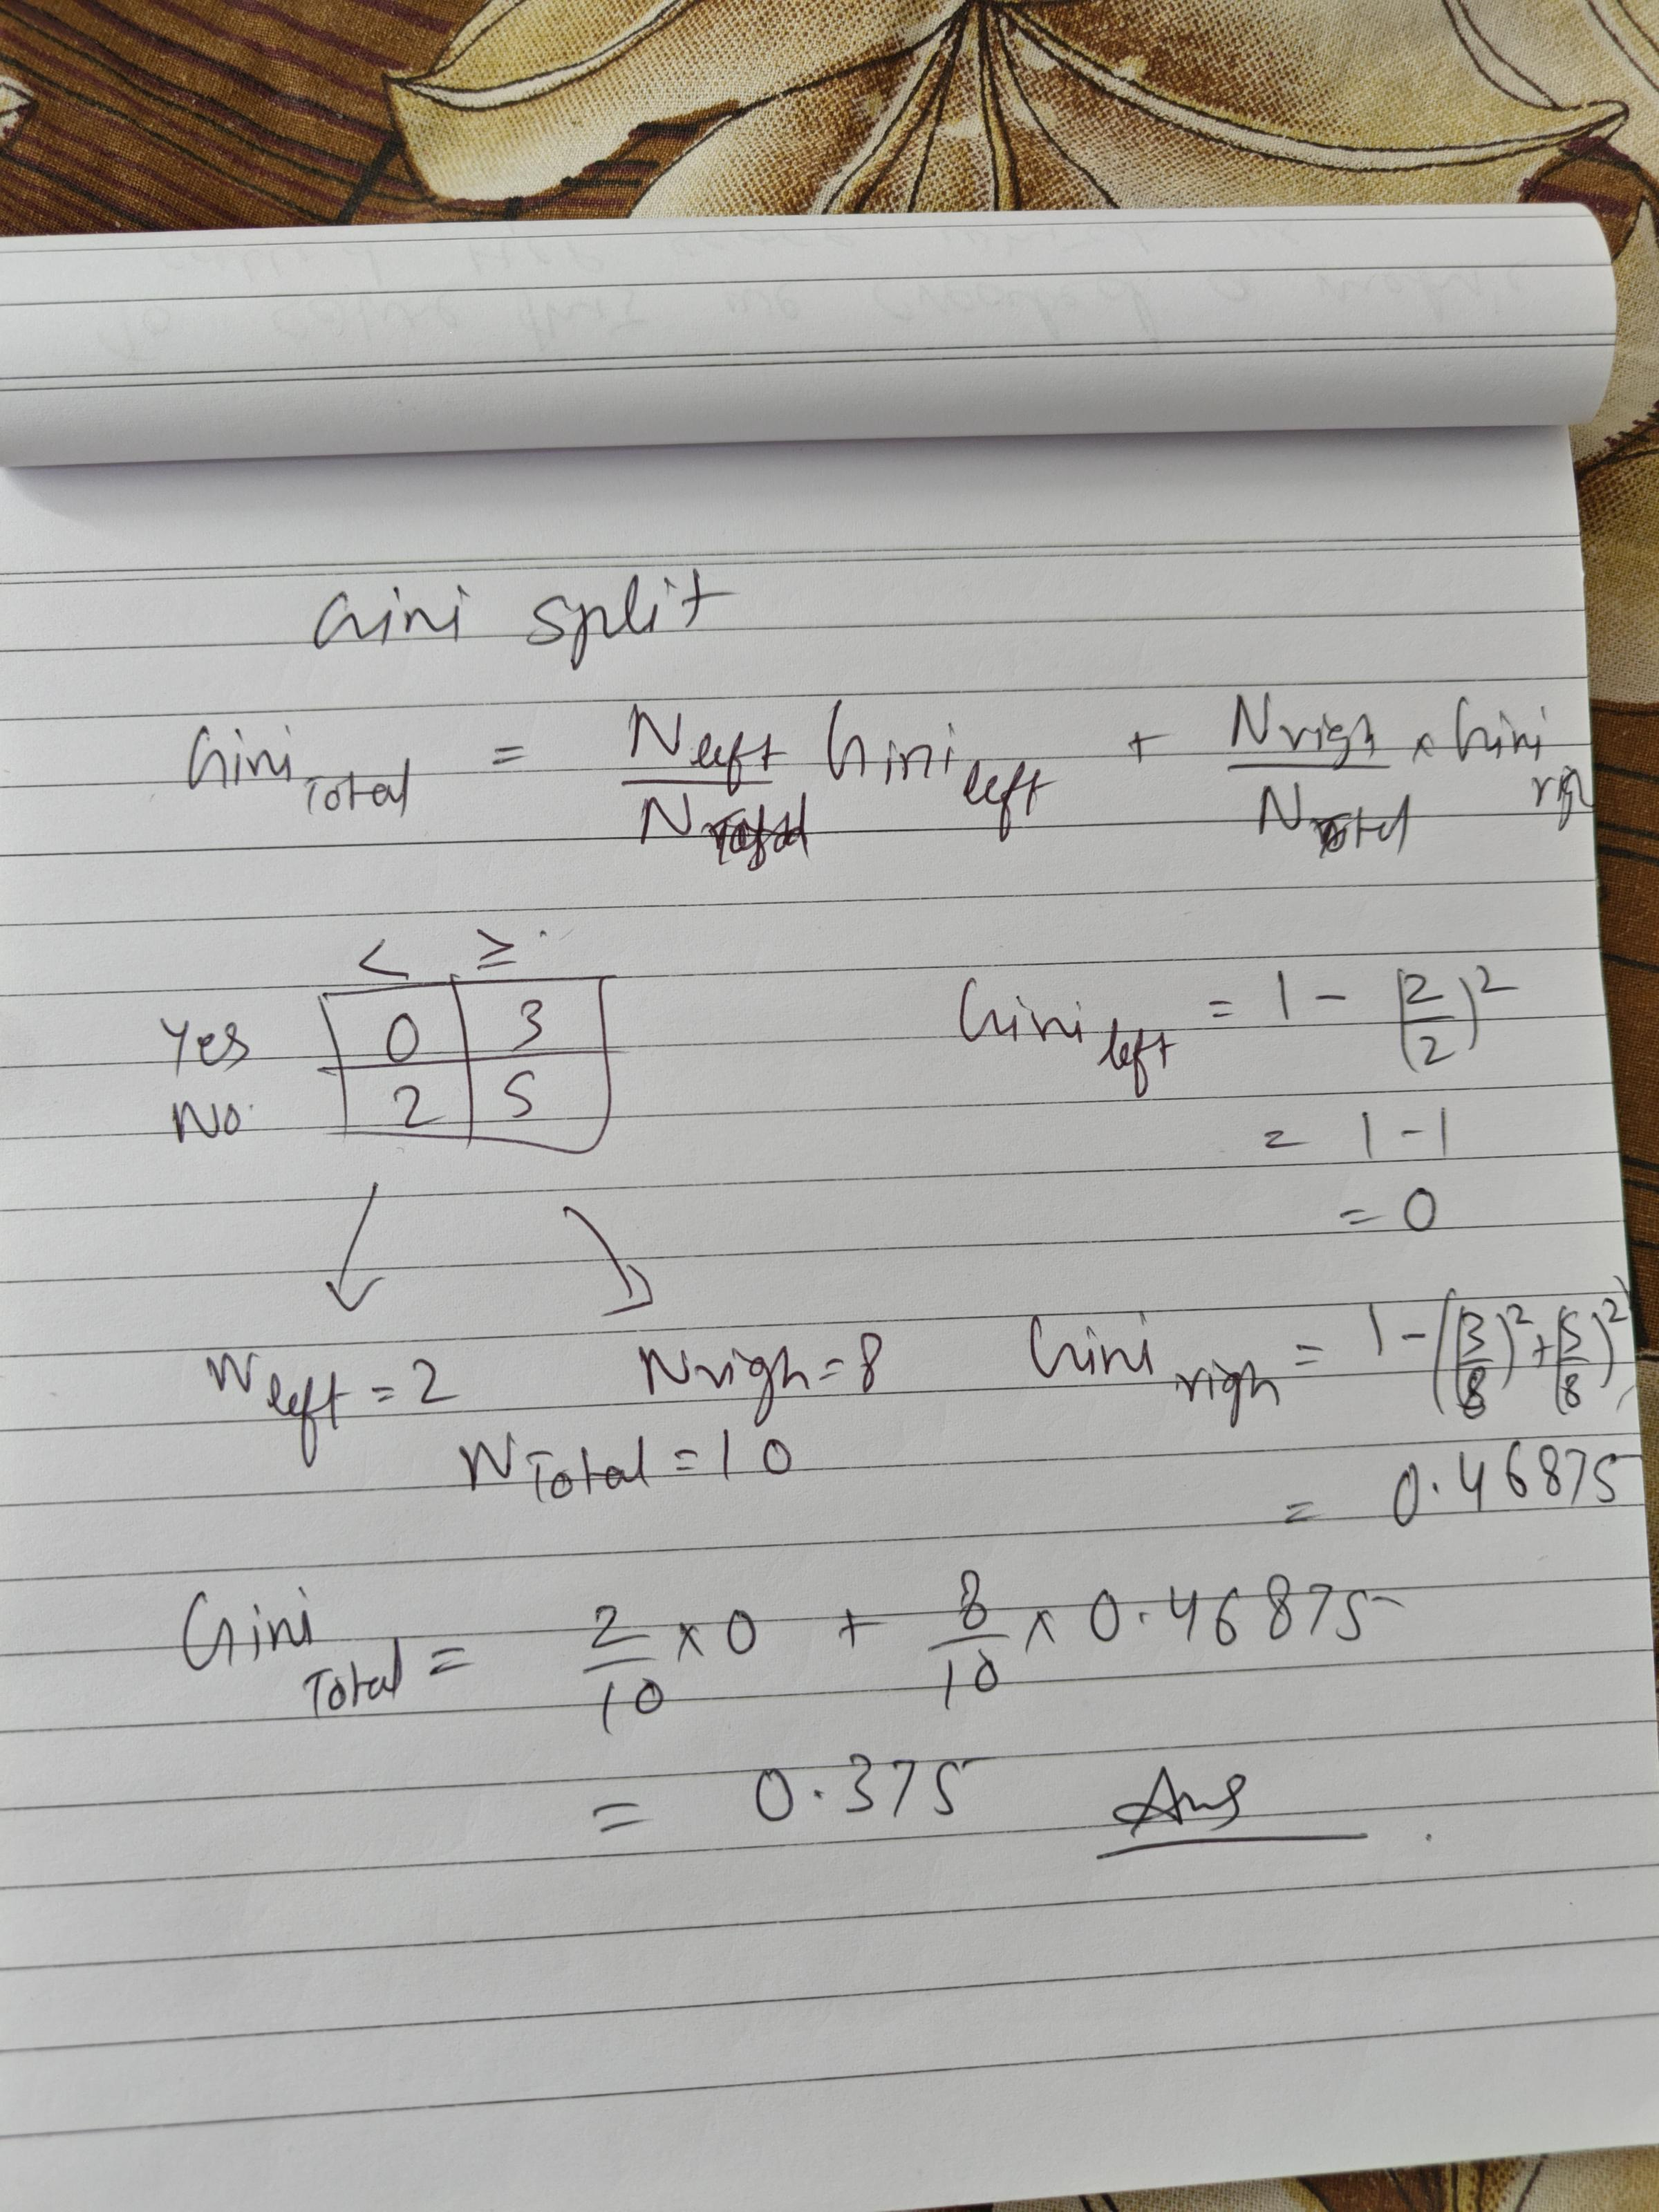 Gini split
Gini Total = N left / N Total Gini left + N righ / N Total × Gini righ
< ≥
Yes 0 3
No 2 5
Gini left = 1 - (2/2)²
= 1 - 1
= 0
N left = 2 N righ = 8
N Total = 10
Gini righ = 1 - ((3/8)² + (5/8)²)
= 0.46875
Gini Total = 2/10 × 0 + 8/10 × 0.46875
= 0.375 Ans